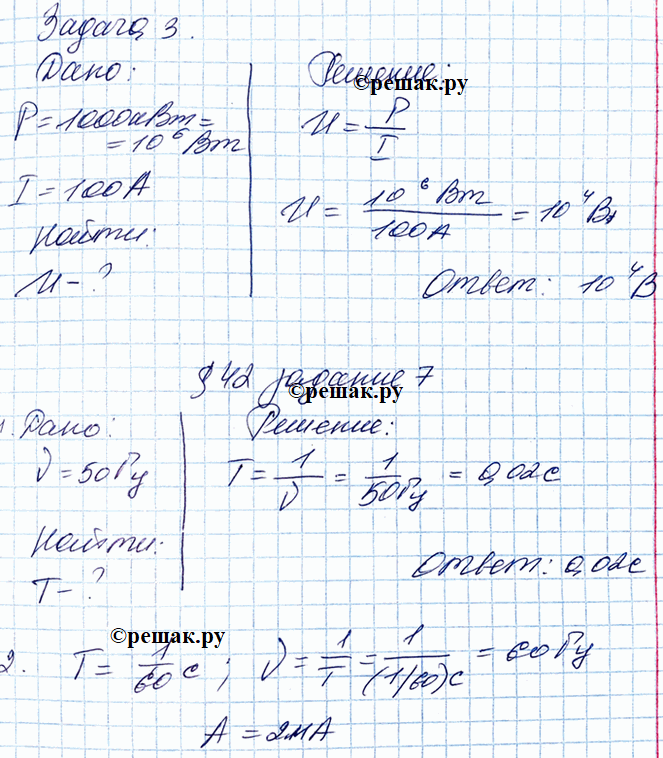 Задача 3.
Дано:
P = 1000кВт =
= 10⁶ Вт
I = 100А
Найти:
U - ?
Решение:
©решак.ру
U = P/I
U = 10⁶ Вт / 100А = 10⁴ Вт
Ответ: 10⁴ В
§ 42 задание 7
©решак.ру
1. Дано:
ν = 50Гц
Найти:
T - ?
Решение:
T = 1/ν = 1/50Гц = 0,02с
Ответ: 0,02с
©решак.ру
2. T = 1/60 с ; ν = 1/T = 1/(1/60)с = 60Гц
A = 2мА